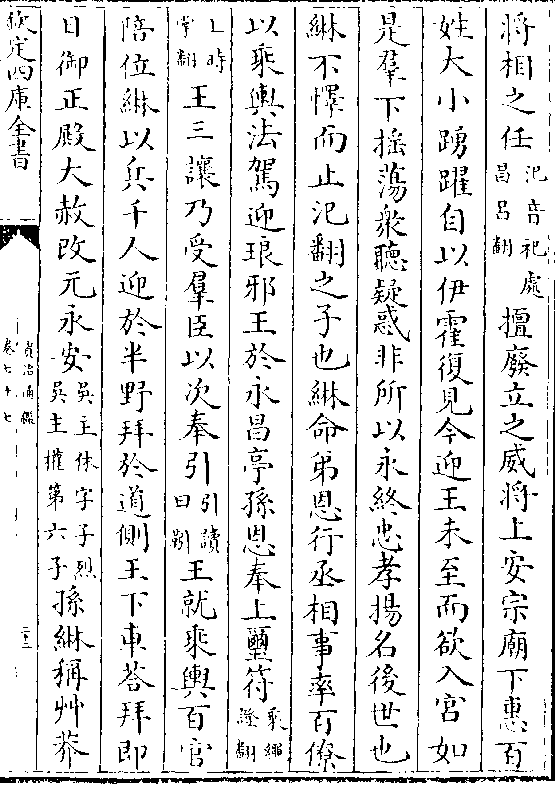 將相之任汜音祀處昌呂翻擅廢立之威將上安宗廟下惠百
姓大小踴躍自以伊霍復見今迎王未至而欲入宮如
是羣下搖蕩衆聽疑惑非所以永終忠孝揚名後世也
綝不懌而止汜翻之子也綝命弟恩行丞相事率百僚
以乘輿法駕迎琅邪王於永昌亭孫恩奉上璽符乘繩證翻
上時掌翻王三讓乃受羣臣以次奉引引讀曰靷王就乘輿百官
陪位綝以兵千人迎於半野拜於道側王下車荅拜即
日御正殿大赦改元永安吳主休字子烈吳主權第六子孫綝稱艸莽
欽定四庫全書
資治通鑑
卷七十七
二十三